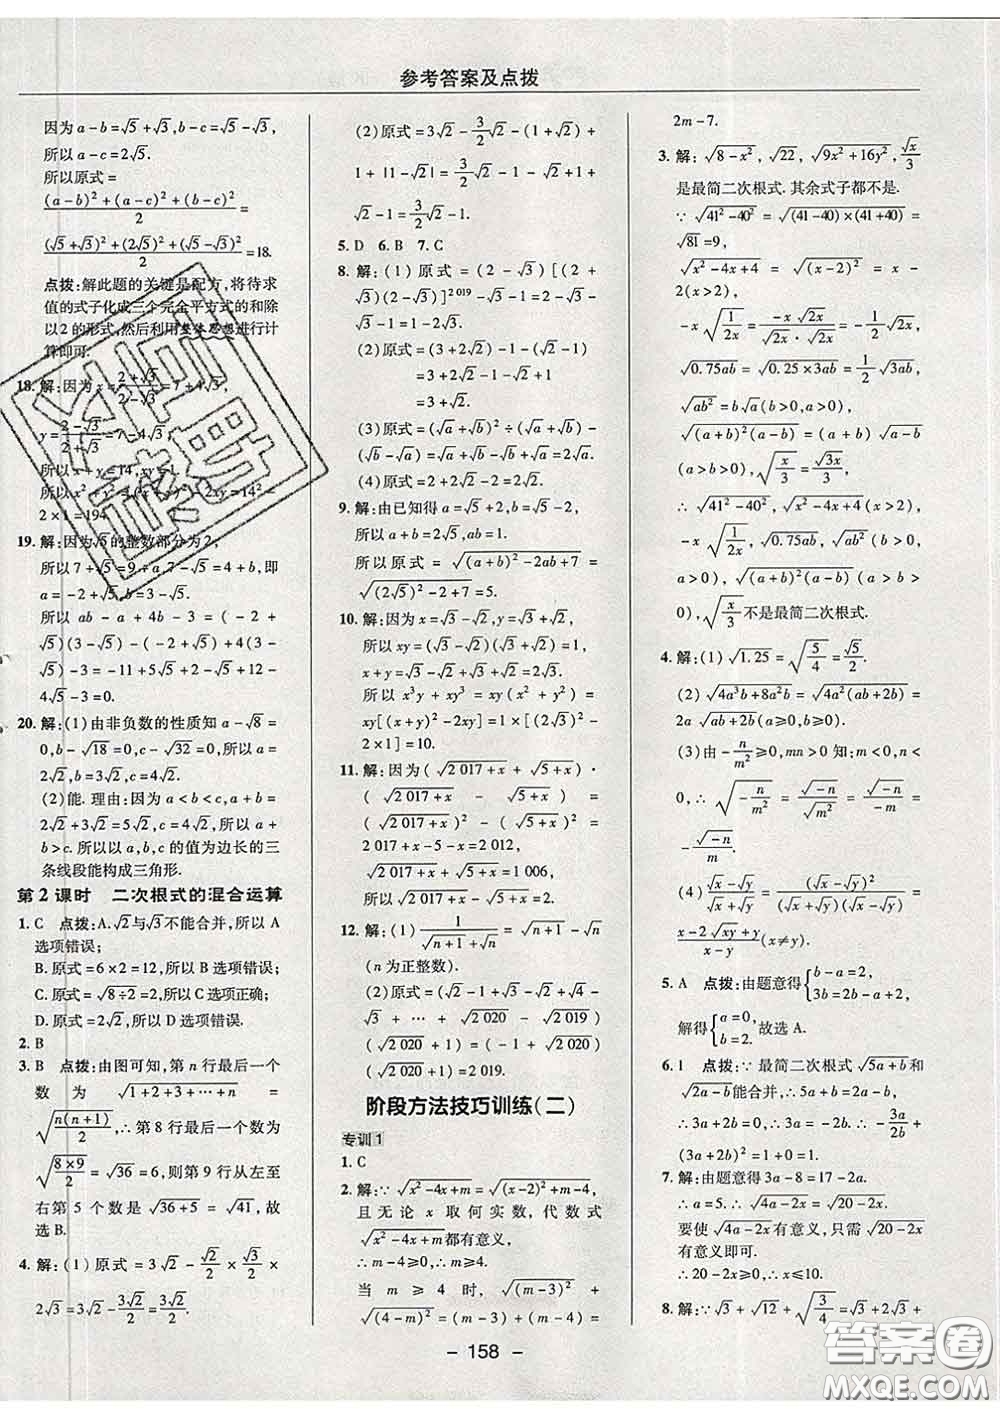 参考答案及点拨
因为a-b=√5+√3,b-c=√5-√3,
所以a-c=2√5.
所以原式=
((a-b)²+(a-c)²+(b-c)²)/2=
((√5+√3)²+(2√5)²+(√5-√3)²)/2=18.
点拨:解此题的关键是配方,将待求
值的式子化成三个完全平方式的和除
以2的形式,然后利用整体思想进行计
算即可.
18.解:因为x=(2+√3)/(2-√3)=7+4√3,
y=(2-√3)/(2+√3)=7-4√3,
所以x+y=14,xy=1.
所以x²+y²=(x+y)²-2xy=14²-
2×1=194.
19.解:因为√5的整数部分为2,
所以7+√5=9+a,7-√5=4+b,即
a=-2+√5,b=3-√5.
所以ab-a+4b-3=(-2+
√5)(3-√5)-(-2+√5)+4(3-
√5)-3=-11+5√5+2-√5+12-
4√5-3=0.
20.解:(1)由非负数的性质知a-√8=
0,b-√18=0,c-√32=0,所以a=
2√2,b=3√2,c=4√2.
(2)能.理由:因为a<b<c,a+b=
2√2+3√2=5√2,c=4√2,所以a+
b>c.所以a,b,c的值为边长的三
条线段能构成三角形.
第2课时 二次根式的混合运算
1.C 点拨:A.√2与√3不能合并,所以A
选项错误;
B.原式=6×2=12,所以B选项错误;
C.原式=√(8÷2)=2,所以C选项正确;
D.原式=2√2,所以D选项错误.
2.B
3.B 点拨:由图可知,第n行最后一个
数为√(1+2+3+…+n)=
√(n(n+1)/2),∴第8行最后一个数为
√(8×9/2)=√36=6,则第9行从左至
右第5个数是√(36+5)=√41,故
选B.
4.解:(1)原式=3√2-√2/2×√3/2×
2√3=3√2-3√2/2=3√2/2.
(2)原式=3√2-(3/2)√2-(1-√2)+
1+|1-√2|=(3/2)√2-1+√2+1+
√2-1=(3/2)√2.
5.D 6.B 7.C
8.解:(1)原式=(2-√3)[(2+
√3)(2-√3)]^2 019=2-√3.
(2)原式=(3+2√2)-(1+√2)
=3+2√2-1-√2
=2+√2.
(3)原式=(√a+√b)²÷(√a+√b)-
(√b-√a)=√a+√b-√b+√a=2√a.
(4)原式=2+2√2-2=2√2.
9.解:由已知得a=√5+2,b=√5-2,
所以a+b=2√5,ab=1.
所以原式=√((a+b)²-2ab+7)=
√((2√5)²-2+7)=5.
10.解:因为x=√3-√2,y=√3+√2,
所以xy=(√3-√2)(√3+√2)=1,
x+y=√3-√2+√3+√2=2√3.
所以x³y+xy³=xy(x²+y²)=
xy[(x+y)²-2xy]=1×[(2√3)²-
2×1]=10.
11.解:因为(√(2 017+x)+√(5+x))·
(√(2 017+x)-√(5+x))=
(√(2 017+x))²-(√(5+x))²=
2 017+x-5-x=2 012,
√(2 017+x)+√(5+x)=2,
所以√(2 017+x)-√(5+x)=
1 006.
12.解:(1)1/(√(n+1)+√n)=√(n+1)-√n
(n为正整数).
(2)原式=(√2-1+√3-√2+√4-
√3+…+√2 020-√2 019)
(√2 020+1)=(-1+√2 020)
(√2 020+1)=2 019.
阶段方法技巧训练(二)
专训1
1.C
2.解:∵√(x²-4x+m)=√((x-2)²+m-4),
且无论x取何实数,代数式
√(x²-4x+m)都有意义,
∴m-4≥0,∴m≥4.
当m≥4时,√((m-3)²)+
√((4-m)²)=(m-3)+(m-4)=
2m-7.
3.解:√(8-x²),√22,√(9x²+16y²),√x/3
是最简二次根式.其余式子都不是.
∵√(41²-40²)=√((41-40)×(41+40))=
√81=9,
√(x²-4x+4)=√((x-2)²)=x-
2(x>2),
-x√(1/(2x))=(-x√(2x))/(2x)=-(1/2)√(2x),
√(0.75ab)=√(0.25×3ab)=(1/2)√(3ab),
√(ab²)=b√a(b>0,a>0),
√((a+b)²(a-b))=(a+b)√(a-b)
(a>b>0),√(x/3)=√(3x)/3,
∴√(41²-40²),√(x²-4x+4)(x>2),
-x√(1/(2x)),√(0.75ab),√(ab²)(b>0,
a>0),√((a+b)²(a-b))(a>b>
0),√(x/3)不是最简二次根式.
4.解:(1)√1.25=√(5/4)=√5/2.
(2)√(4a³b+8a²b)=√(4a²(ab+2b))=
2a√(ab+2b)(a≥0,b≥0).
(3)由-n/m²≥0,mn>0知:m<0,n<
0,∴√(-n/m²)=√(-n)/√(m²)=√(-n)/(-m)=
-√(-n)/m.
(4)(√x-√y)/(√x+√y)=(√x-√y)²/((√x+√y)(√x-√y))=
(x-2√(xy)+y)/(x-y)(x≠y).
5.A 点拨:由题意得{b-a=2,
3b=2b-a+2,
解得{a=0,
b=2.故选A.
6.1 点拨:∵最简二次根式√(5a+b)和
√(2a-b)能合并,∴5a+b=2a-b,
∴3a+2b=0,∴3a=-2b,∴-3a/2b=
1,∴-3a/2b+(3a+2b)²=1+0=1.
7.解:由题意得3a-8=17-2a.
∴a=5.∴√(4a-2x)=√(20-2x).
要使√(4a-2x)有意义,只需√(20-2x)
有意义即可.
∴20-2x≥0,∴x≤10.
8.解:∵√3+√12+√(3/4)=√3+2√3+
- 158 -
答案圈
MXQE.COM